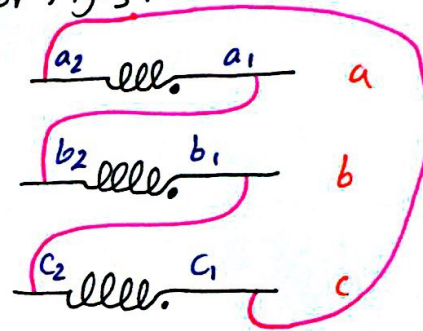 a2 a1 a
b2 b1 b
c2 c1 c